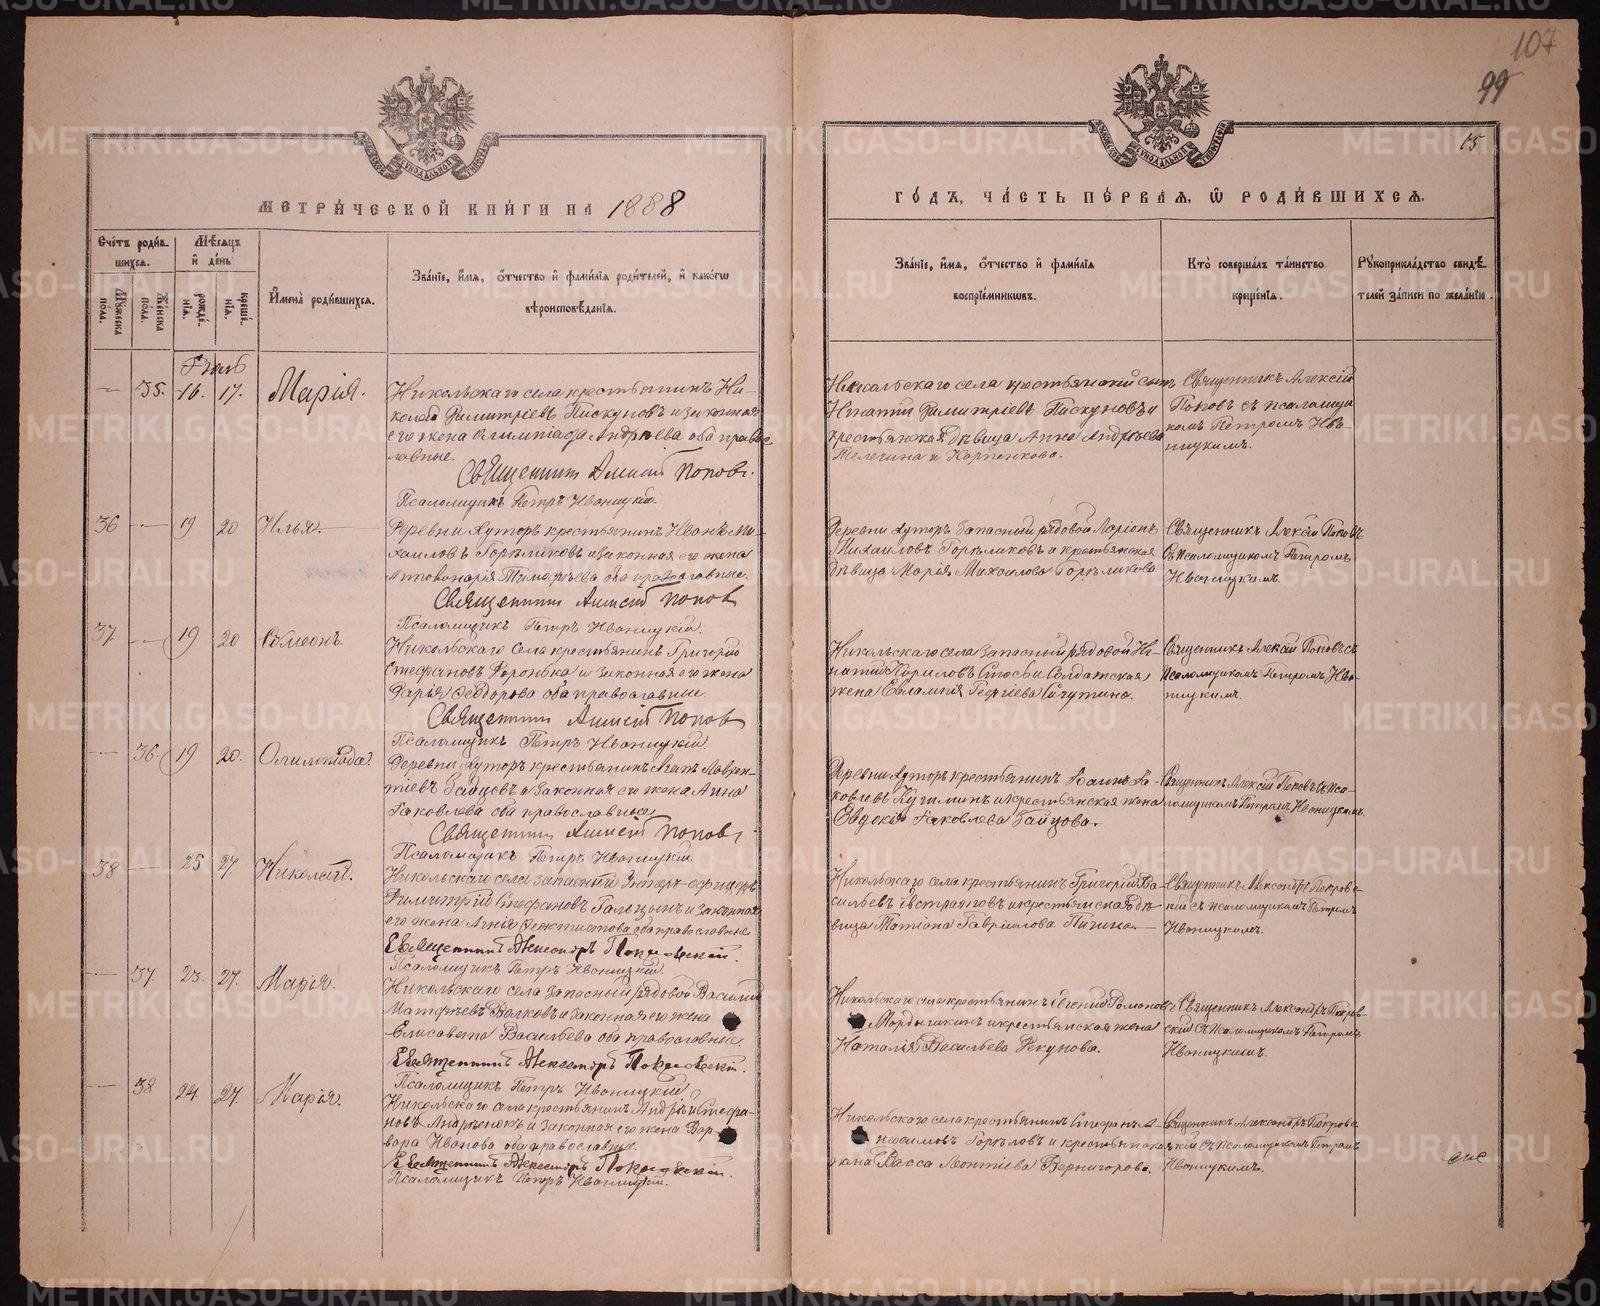 107
99
15
МЕТРИ́ЧЕСКОЙ КНИ́ГИ НА 1888
ГО́ДЪ, ЧА́СТЬ ПЕ́РВАЯ, Ѡ РОДИ́ВШИХСЯ.
Счétъ роди́в-
шихся.
Мѣ́сяцъ
и де́нь
Му́жеска
по́ла.
Же́нска
по́ла.
рожде́-
нія.
креще́-
нія.
И҆мена̀ роди́вшихся.
Зва́ніе, и҆́мя, ѻ҆́тчество и҆ фами́лія роди́телей, и҆ како́гѡ
вѣроисповѣ́данія.
Зва́ніе, и҆́мя, ѻ҆́тчество и҆ фами́лія
воспріе́мниковъ.
Кто̀ соверша́лъ та́инство
креще́нія.
Рꙋкоприкла́дство свидѣ́-
телей за́писи по жела́нію.
35. 16. 17. Марія.
Никольскаго села крестьянинъ Ни-
колай Димитріевъ Пискуновъ и законная
его жена Олимпіада Андреева оба правос-
лавные.
Священникъ Алексій Поповъ.
Псаломщикъ Петръ Ивоницкій.
Никольскаго села крестьянскій сынъ
Игнатій Димитріевъ Пискуновъ и
крестьянская дѣвица Анна Андреева
Священникъ Алексій
Поповъ съ псаломщи
комъ Петромъ Иво-
ницкимъ.
36 19 20 Илья.
Деревни Хуторъ крестьянинъ Иванъ Ми-
хаиловъ Горѣликовъ и законная его жена
Аполинарія Тимофѣева оба православные.
Священникъ Алексій Поповъ
Псаломщикъ Петръ Ивоницкій.
Деревни Хуторъ запасный рядовой Ларіонъ
Михаиловъ Горѣликовъ и крестьянская
дѣвица Марія Михаилова Горѣликова
Священникъ Алексій Поповъ
съ псаломщикомъ Петромъ
Ивоницкимъ.
37 19 20 Симеонъ.
Никольскаго села крестьянинъ Григорій
Стефановъ Воронька и законная его жена
Дарья Феодорова оба православные.
Священникъ Алексій Поповъ
Псаломщикъ Петръ Ивоницкій.
Никольскаго села запасный рядовой Иг-
натій Кириловъ и солдатская
жена Евлампія Георгіева
Священникъ Алексій Поповъ съ
псаломщикомъ Петромъ Иво-
ницкимъ.
36. 19 20. Олимпіада.
Деревни Хуторъ крестьянинъ Лаврен-
тіевъ Зайцевъ и законная его жена Анна
Іаковлева оба православные.
Священникъ Алексій Поповъ
Псаломщикъ Петръ Ивоницкій.
Деревни Хуторъ крестьянинъ Іоаннъ Іа-
ковлевъ и крестьянская жена
Евдокія Іаковлева Зайцова.
Священникъ Алексій Поповъ съ пса-
ломщикомъ Петромъ Ивоницкимъ.
38 25 27 Николай.
Никольскаго села запасный Унтеръ-офицеръ
Димитрій Стефановъ Гальцынъ и законная
его жена Агнія оба православные
Священникъ Александръ Покровскій.
Псаломщикъ Петръ Ивоницкій.
Никольскаго села крестьянинъ Григорій Ва-
сильевъ и крестьянская дѣ-
вица Татіана Гавріилова
Священникъ Александръ Покровс-
кій съ псаломщикомъ Петромъ
Ивоницкимъ.
37 23. 27. Марія.
Никольскаго села запасный рядовой Василій
Матфѣевъ Волковъ и законная его жена
Елисавета Васильева оба православные
Священникъ Александръ Покровскій.
Псаломщикъ Петръ Ивоницкій.
Никольскаго села крестьянинъ Евгеній Романовъ
Мордышкинъ и крестьянская жена
Наталія Васильева Рекунова.
Священникъ Александръ Покров-
скій съ псаломщикомъ Петромъ
Ивоницкимъ.
38 24. 27. Марія.
Никольскаго села крестьянинъ Андрей Стефа-
новъ и законная его жена Вар-
вара Иванова оба православные.
Священникъ Александръ Покровскій.
Псаломщикъ Петръ Ивоницкій.
Никольскаго села крестьянинъ Стефанъ
Горѣловъ и крестьянская
жена Васса Леонтіева Вернигорова.
Священникъ Александръ Покровс
кій съ псаломщикомъ Петромъ
Ивоницкимъ.
METRIKI.GASO-URAL.RU